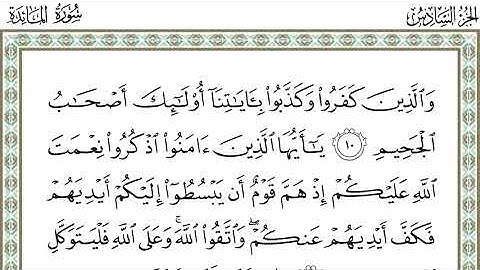 الجزء السادس
سورة المائدة
وَالَّذِينَ كَفَرُوا۟ وَكَذَّبُوا۟ بِـَٔايَٰتِنَآ أُو۟لَٰٓئِكَ أَصْحَٰبُ
الْجَحِيمِ ١٠ يَٰٓأَيُّهَا الَّذِينَ ءَامَنُوا۟ اذْكُرُوا۟ نِعْمَتَ
اللَّهِ عَلَيْكُمْ إِذْ هَمَّ قَوْمٌ أَن يَبْسُطُوٓا۟ إِلَيْكُمْ أَيْدِيَهُمْ
فَكَفَّ أَيْدِيَهُمْ عَنكُمْ ۖ وَاتَّقُوا۟ اللَّهَ ۚ وَعَلَى اللَّهِ فَلْيَتَوَكَّلِ